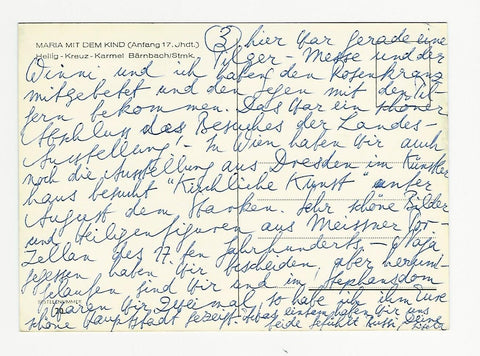 MARIA MIT DEM KIND (Anfang 17. Jhdt.)
Heilig-Kreuz-Karmel Bärnbach/Stmk.
③ hier war gerade eine
Pilger-Messe und der
Winni und ich haben den Rosenkranz
mitgebetet und den Segen mit den Pil-
gern bekommen. Das war ein schöner
Abschluss des Besuches der Landes-
Ausstellung! – In Wien haben wir auch
noch die Ausstellung aus Dresden im Künstler
haus besucht "Kirchliche Kunst" unter
August dem Starken. Sehr schöne Bilder
und Heiligenfiguren aus Meissner Por-
zellan des 17. ten Jahrhunderts, –
gegessen haben wir bescheiden, aber herum-
gelaufen sind wir und im Stephansdom
waren wir zwei mal, so habe ich ihm
schöne Hauptstadt gezeigt. einsam haben wir uns
beide gefühlt Kussi Deine